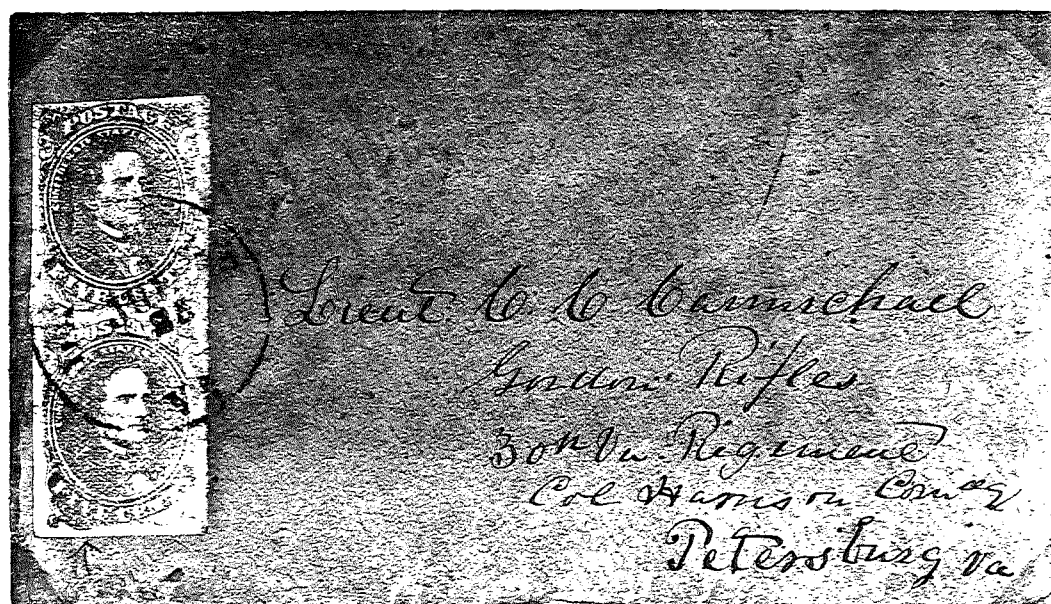 POSTAGE
Lieut C C Carmichael
Gordon Rifles
30th Va Regiment
Col Harrison Comdg
Petersburg Va